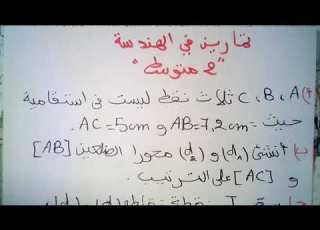 تمارين في الهندسة
"2 متوسط"
أ) A ، B ، C ثلاث نقط ليست في استقامية
حيث AB=7,2cm و AC=5cm.
ب) أنشئ (d₁) و (d₂) محورا الضلعين [AB]
و [AC] على الترتيب.
نقطة